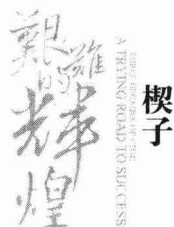 艱難
的
輝煌
A TRYING ROAD TO SUCCESS
楔子